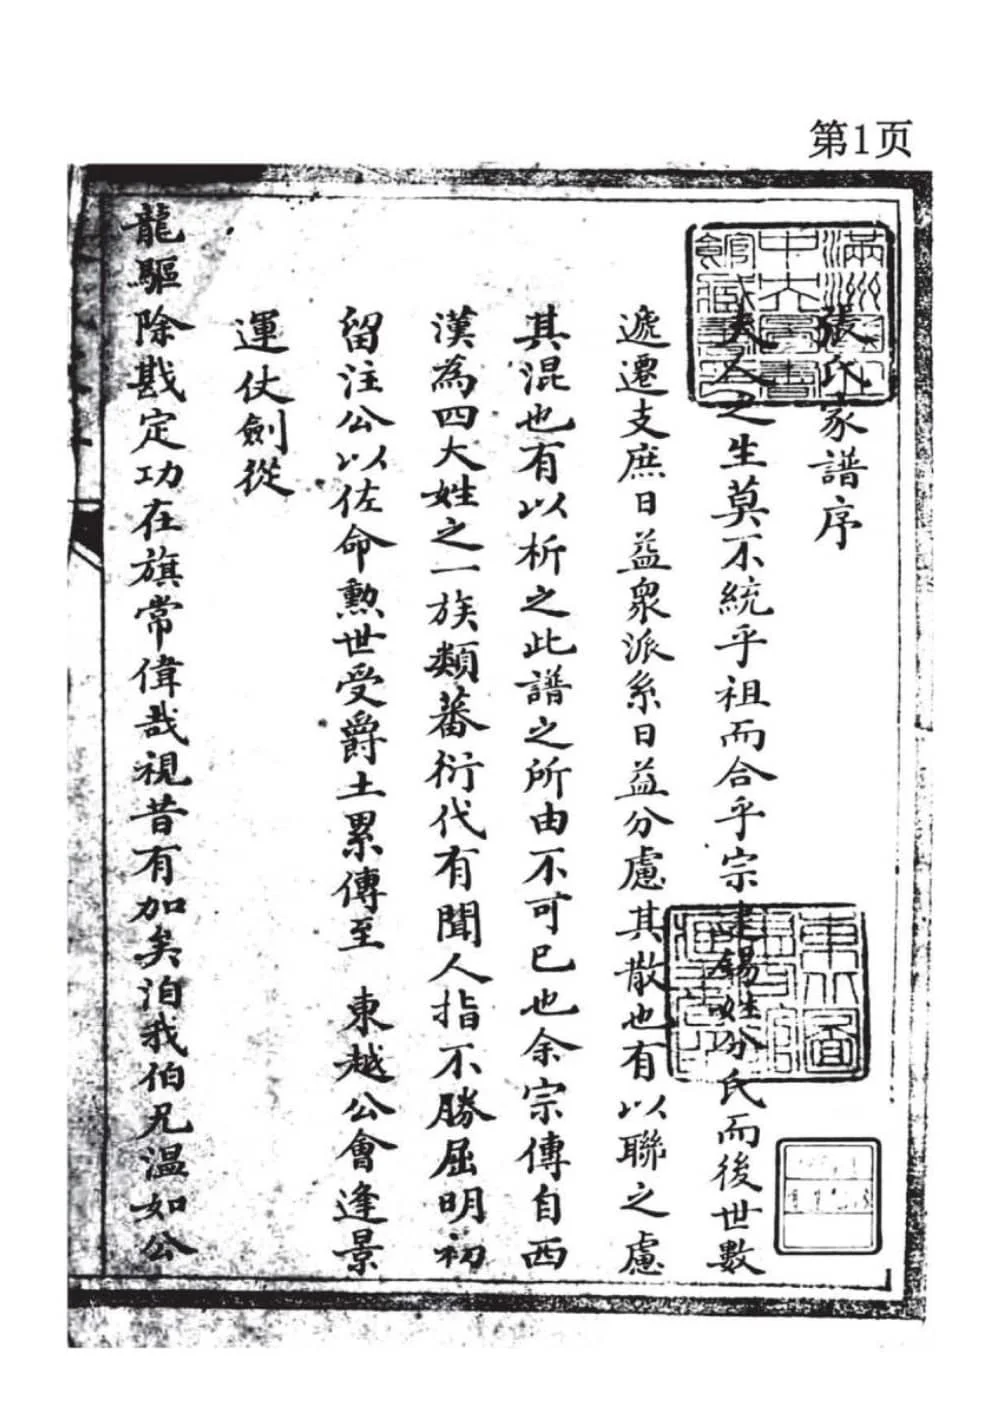 第1页
張氏家譜序
夫人之生莫不統乎祖而合乎宗逮錫姓分氏而後世數
遞遷支庶日益衆派系日益分慮其散也有以聯之慮
其混也有以析之此譜之所由不可已也余宗傳自西
漢為四大姓之一族類蕃衍代有聞人指不勝屈明初
留注公以佐命勲世受爵土累傳至 東越公會逢景
運仗劍從
龍驅除戡定功在旗常偉哉視昔有加矣洎我伯兄溫如公